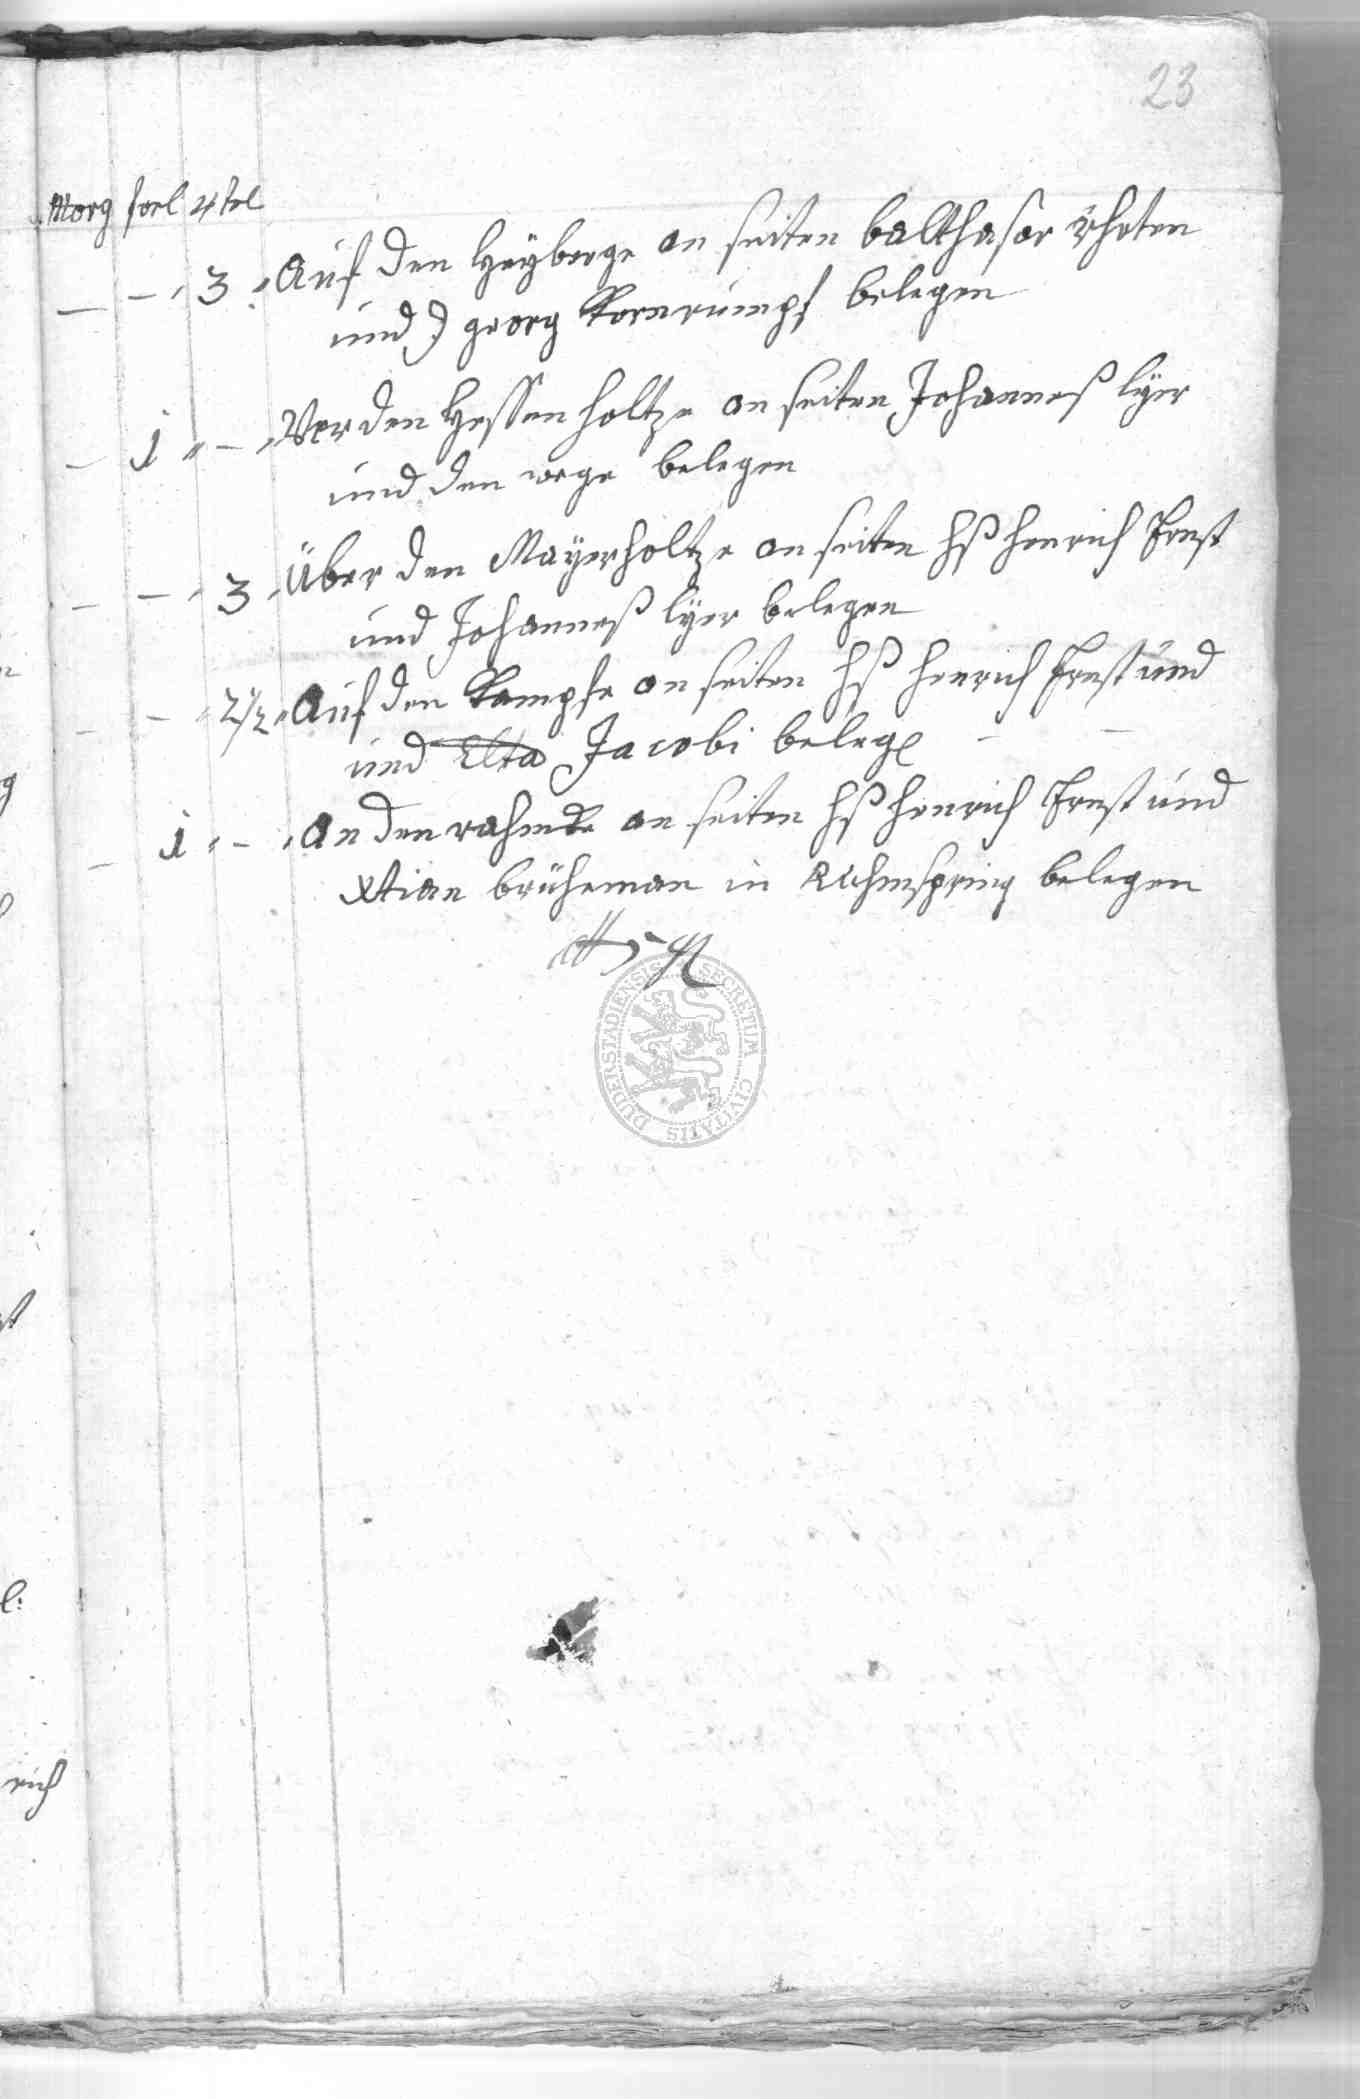 23
Morg forl 4tel
— — 3 Auf den Heÿberge an seiten balthasar rheten
und georg Kornrumpf belegen
— 1 — Vor den Hessenholtze an seiten Johanneß lÿer
und den wege belegen
— — 3 Über den Mayerholtze an seiten Hß Henrich Ernst
und Johanneß lÿer belegen
— — 2½ Auf den Kampfe an seiten Hß Henrich Ernst und
und Jacobi beleg
— 1 — An den rahmke an seiten Hß Henrich Ernst und
Xtian brüheman in Ruhmspring belegen
SECRETUM CIVITATIS DUDERSTADIENSIS
rich